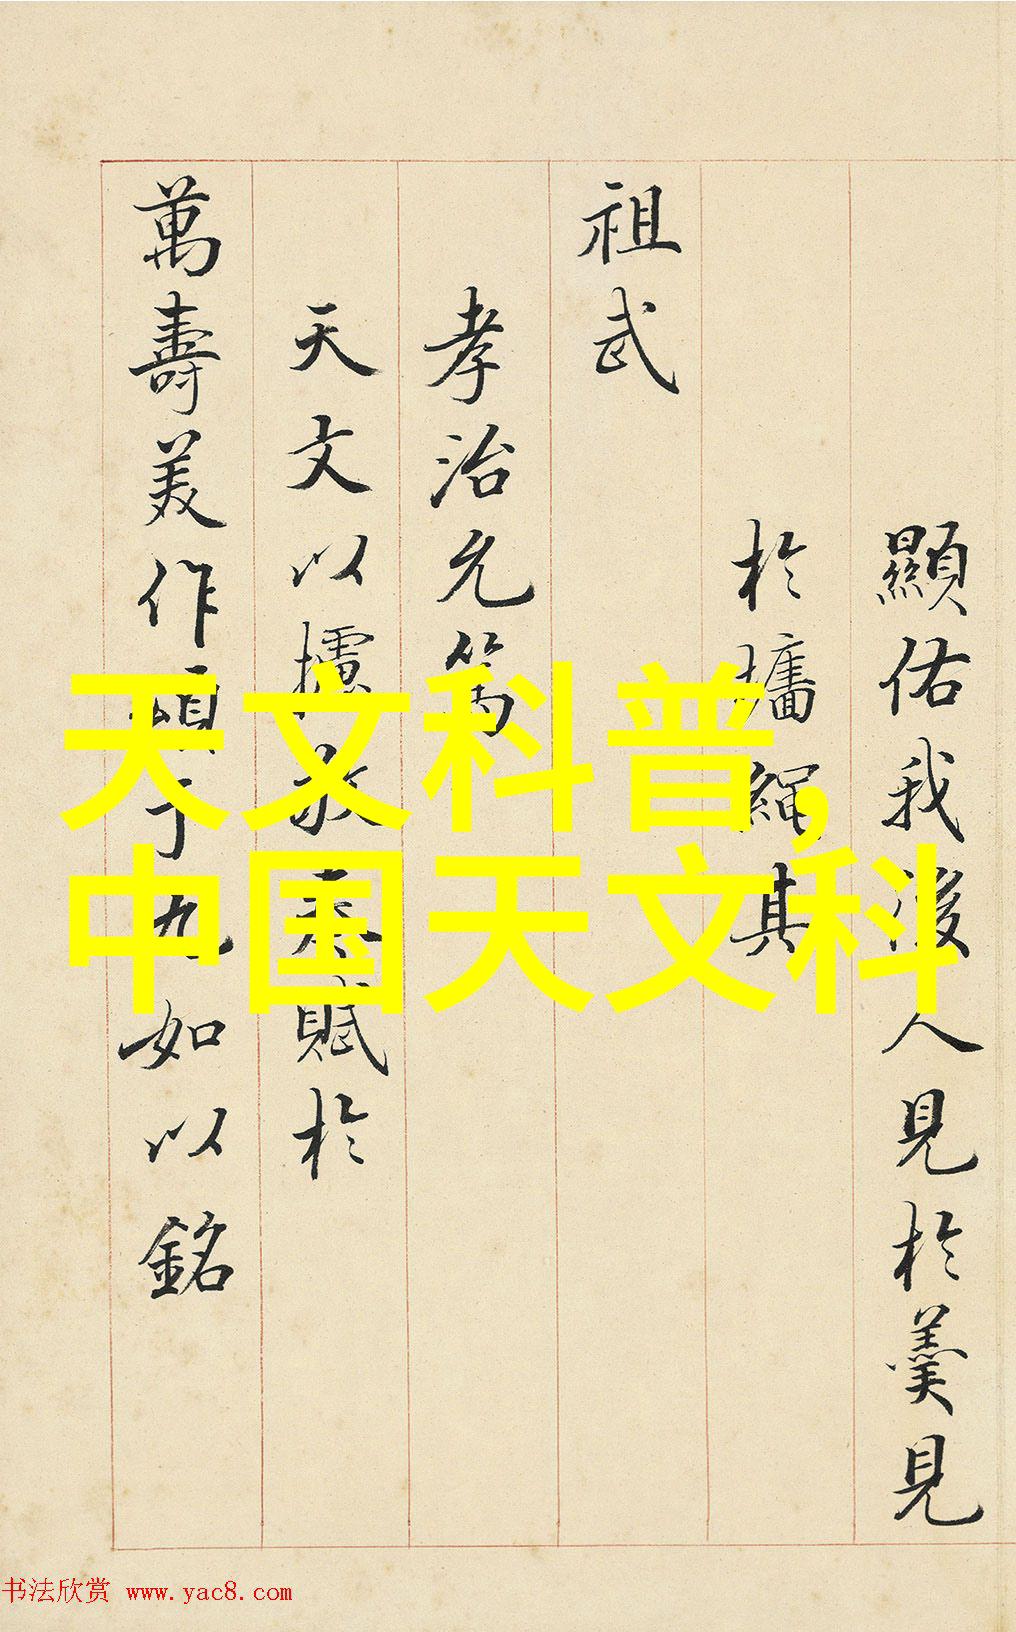 顯佑我後人見於羹見
於墻繩其
祖武
孝治允篤
天文以攄敬奏賦於
萬壽美作頌于九如以銘
天文科普,
中国天文科
书法欣赏 www.yac8.com